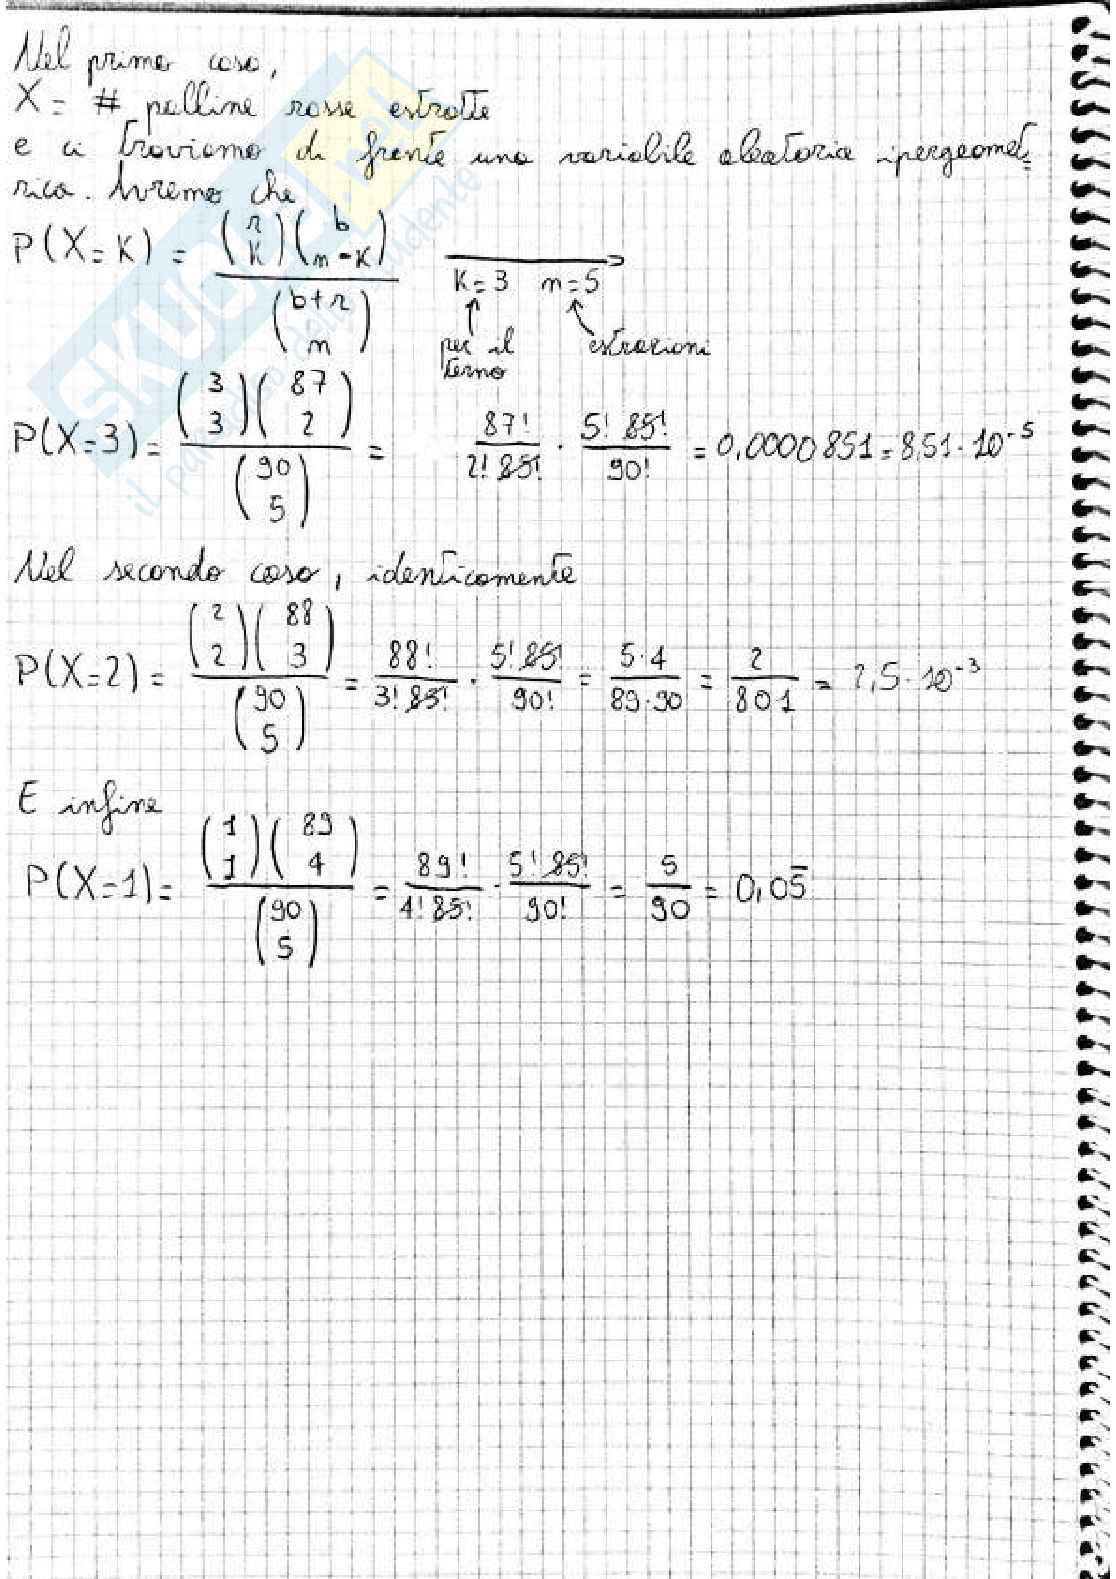 Nel primo caso,
X = # palline rosse estratte
e ci troviamo di fronte una variabile aleatoria ipergeomet=
rica. Avremo che
P(X=K) = \frac{\binom{r}{K}\binom{b}{n-K}}{\binom{b+r}{n}} → K=3 n=5
↑ per il terno ↖ estrazioni
P(X=3) = \frac{\binom{3}{3}\binom{87}{2}}{\binom{90}{5}} = \frac{87!}{2! 85!} · \frac{5! 85!}{90!} = 0,0000851 = 8,51 · 10^{-5}
Nel secondo caso, identicamente
P(X=2) = \frac{\binom{2}{2}\binom{88}{3}}{\binom{90}{5}} = \frac{88!}{3! 85!} · \frac{5! 85!}{90!} = \frac{5·4}{89·90} = \frac{2}{801} = 2,5 · 10^{-3}
E infine
P(X=1) = \frac{\binom{1}{1}\binom{89}{4}}{\binom{90}{5}} = \frac{89!}{4! 85!} · \frac{5! 85!}{90!} = \frac{5}{90} = 0,0\bar{5}
SKUOLA.net